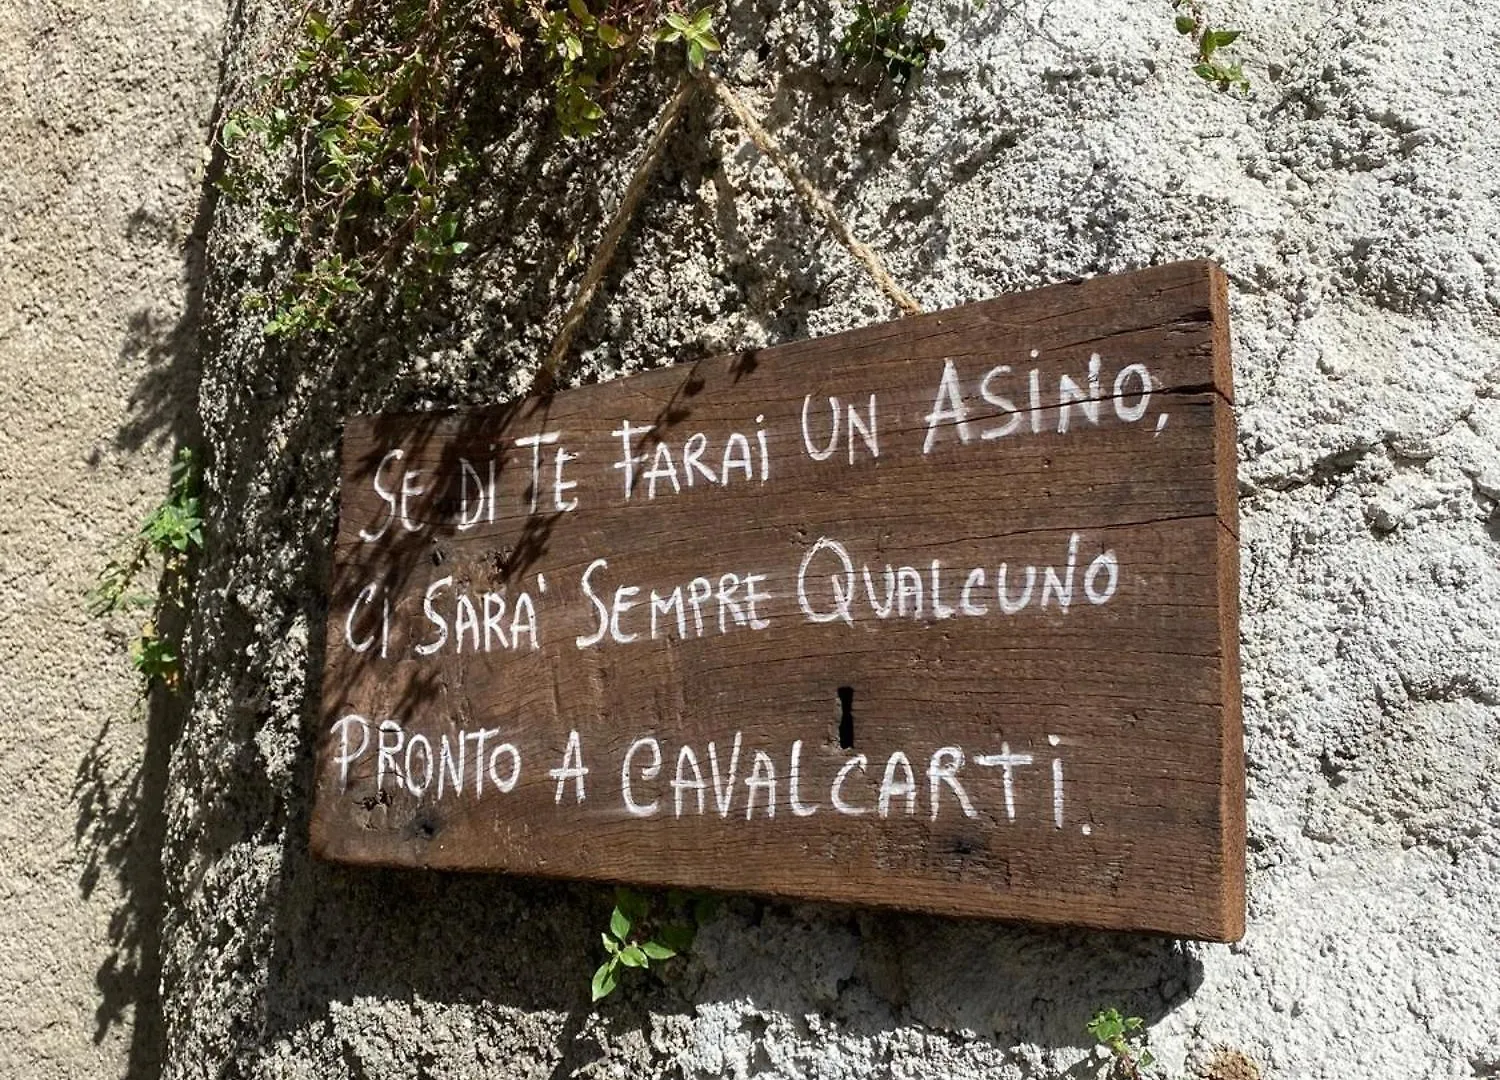 SE Di TE FARAi UN ASiNO,
Ci SARA' SEMPRE QUALCUNO
PRONTO A CAVALCARTi.